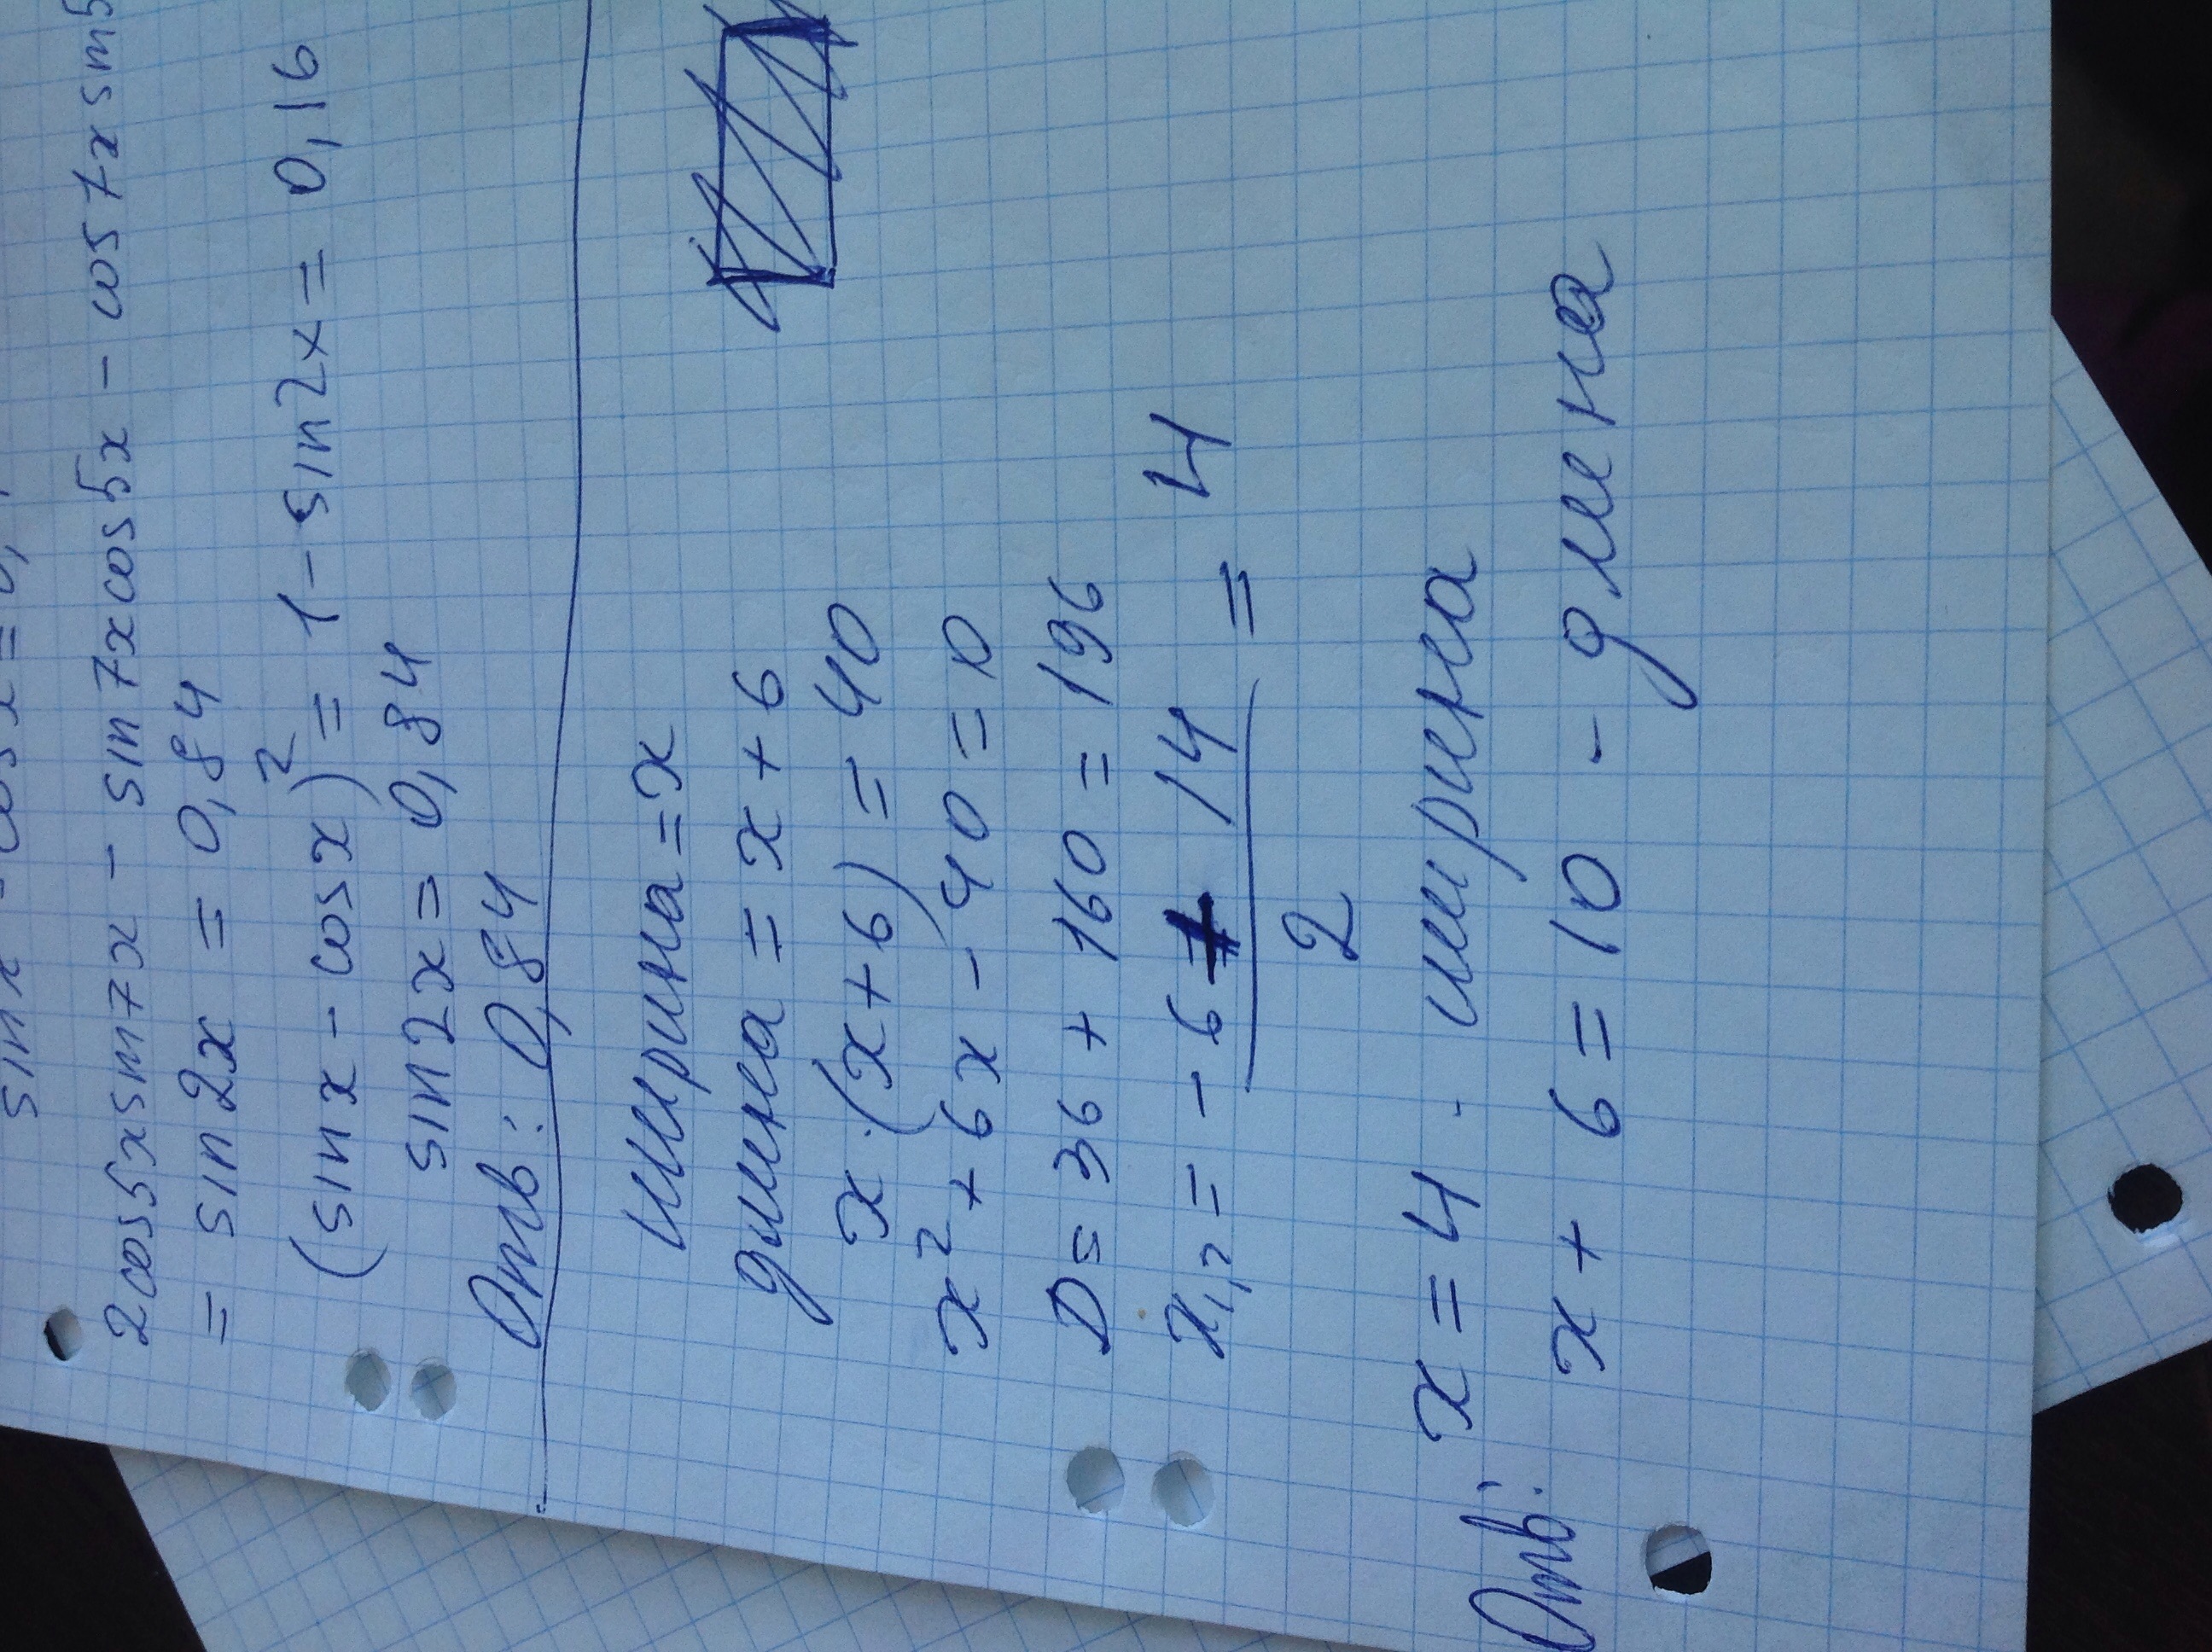 2cos5xsin7x - sin7xcos5x - cos7xsin5
= sin2x = 0,84
(sinx - cosx)² = 1 - sin2x = 0,16
sin2x = 0,84
Отв: 0,84
ширина = x
длина = x + 6
x·(x+6) = 40
x² + 6x - 40 = 10
D = 36 + 160 = 196
x₁,₂ = -6 + 14 / 2 = 4
Отв: x = 4 - ширина
x + 6 = 10 - длина